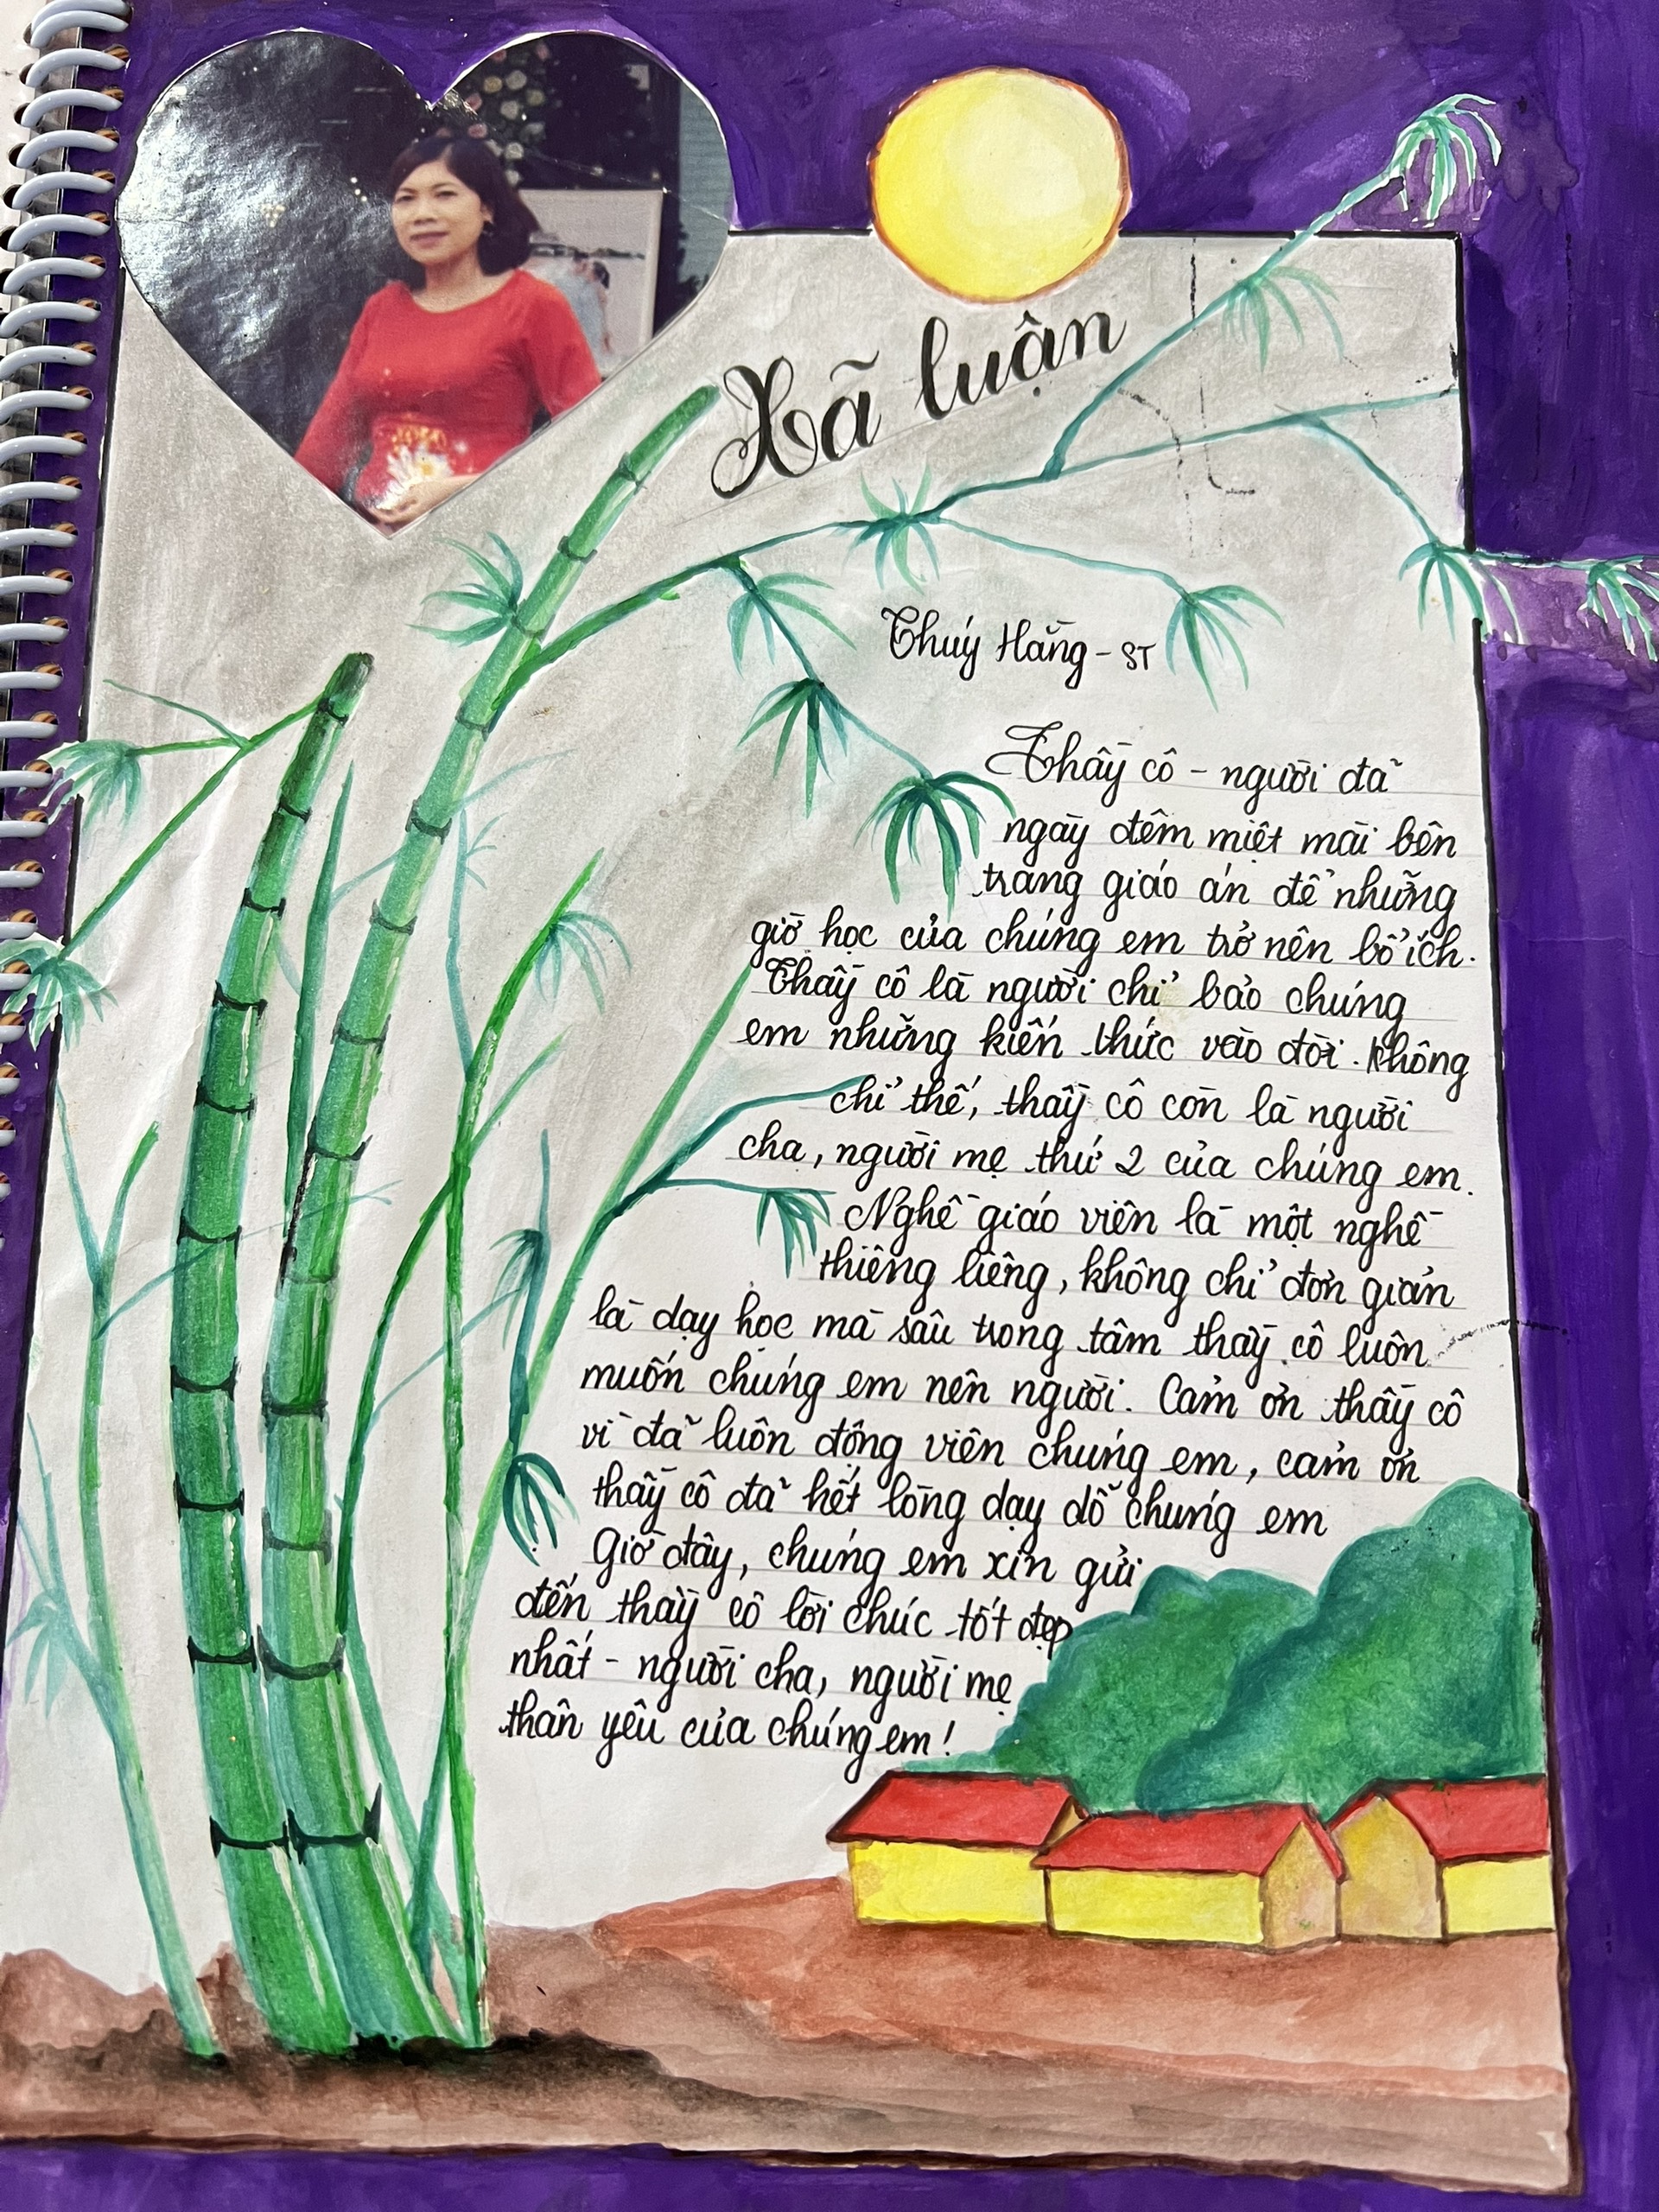 Xã luận
Thuý Hằng - ST
Thầy cô - người đã
ngày đêm miệt mài bên
trang giáo án để những
giờ học của chúng em trở nên bổ ích.
Thầy cô là người chỉ bảo chúng
em những kiến thức vào đời. Không
chỉ thế, thầy cô còn là người
cha, người mẹ thứ 2 của chúng em.
Nghề giáo viên là một nghề
thiêng liêng, không chỉ đơn giản
là dạy học mà sâu trong tâm thầy cô luôn
muốn chúng em nên người. Cảm ơn thầy cô
vì đã luôn động viên chúng em, cảm ơn
thầy cô đã hết lòng dạy dỗ chúng em
Giờ đây, chúng em xin gửi
đến thầy cô lời chúc tốt đẹp
nhất - người cha, người mẹ
thân yêu của chúng em!